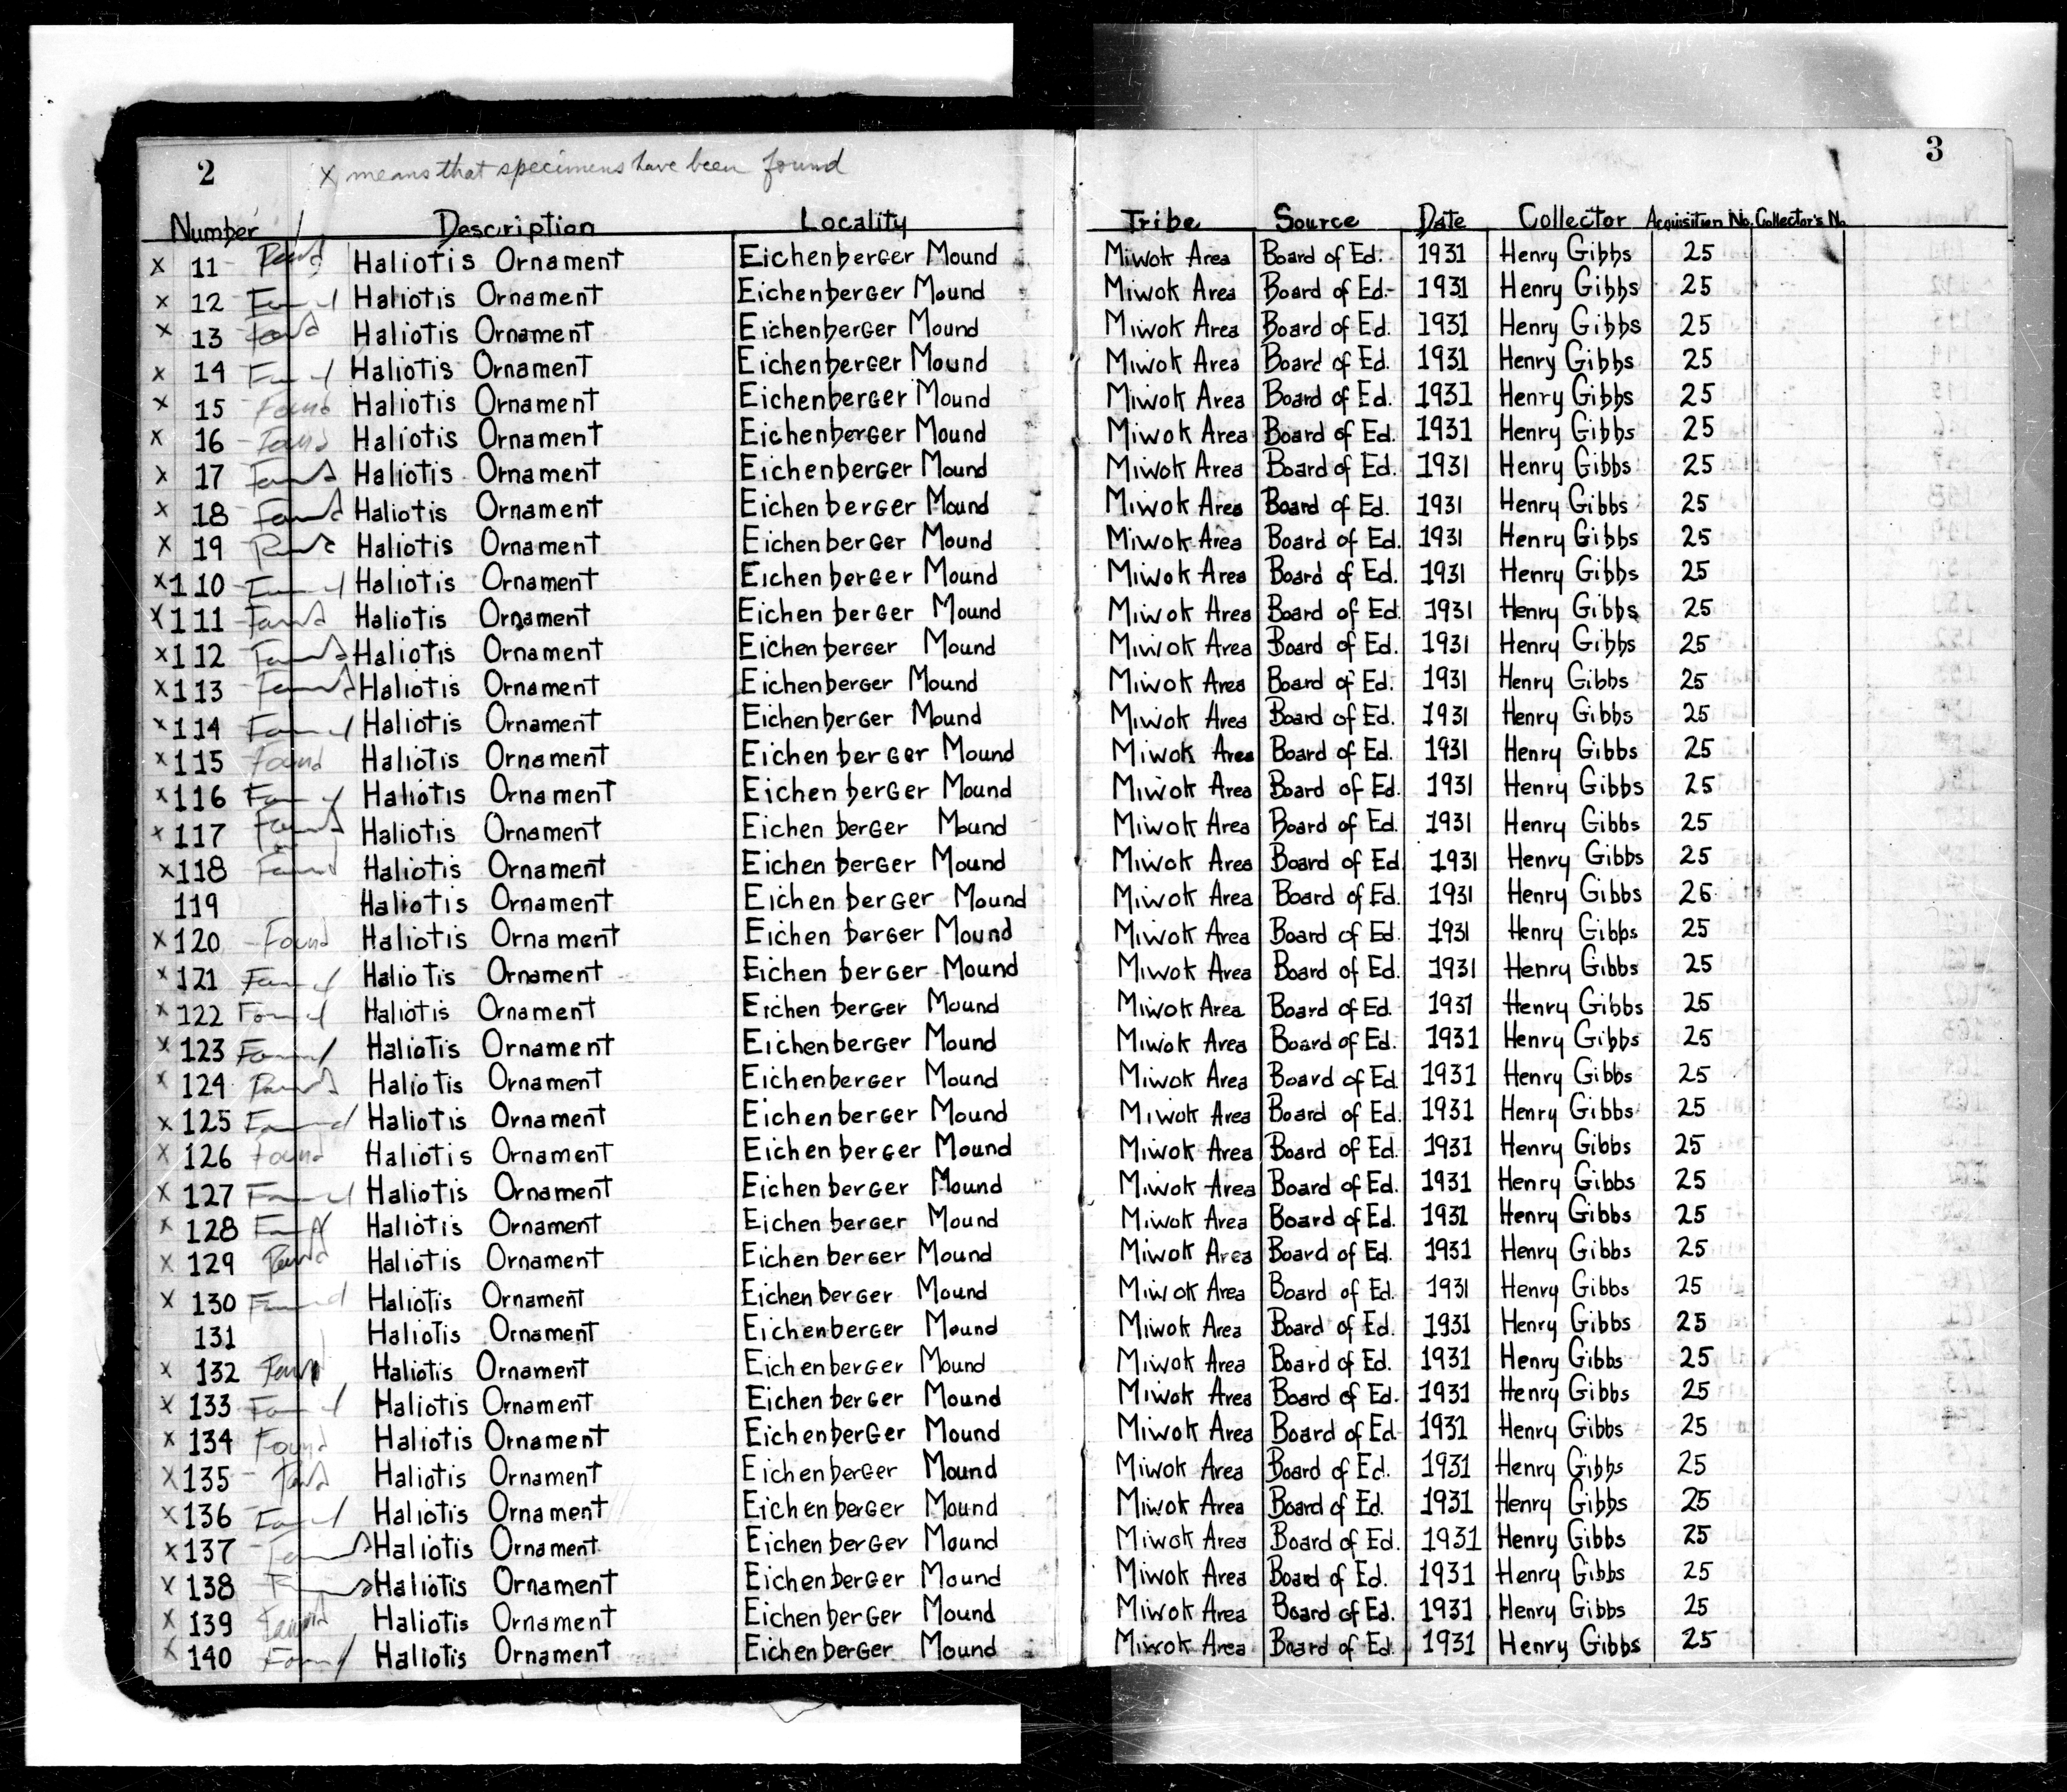 2 3
x means that specimens have been found
Number Description Locality Tribe Source Date Collector Acquisition No. Collector's No.
x 11 Found Haliotis Ornament Eichenberger Mound Miwok Area Board of Ed. 1931 Henry Gibbs 25
x 12 Found Haliotis Ornament Eichenberger Mound Miwok Area Board of Ed. 1931 Henry Gibbs 25
x 13 Found Haliotis Ornament Eichenberger Mound Miwok Area Board of Ed. 1931 Henry Gibbs 25
x 14 Found Haliotis Ornament Eichenberger Mound Miwok Area Board of Ed. 1931 Henry Gibbs 25
x 15 Found Haliotis Ornament Eichenberger Mound Miwok Area Board of Ed. 1931 Henry Gibbs 25
x 16 Found Haliotis Ornament Eichenberger Mound Miwok Area Board of Ed. 1931 Henry Gibbs 25
x 17 Found Haliotis Ornament Eichenberger Mound Miwok Area Board of Ed. 1931 Henry Gibbs 25
x 18 Found Haliotis Ornament Eichenberger Mound Miwok Area Board of Ed. 1931 Henry Gibbs 25
x 19 Found Haliotis Ornament Eichenberger Mound Miwok Area Board of Ed. 1931 Henry Gibbs 25
x 110 Found Haliotis Ornament Eichenberger Mound Miwok Area Board of Ed. 1931 Henry Gibbs 25
x 111 Found Haliotis Ornament Eichenberger Mound Miwok Area Board of Ed. 1931 Henry Gibbs 25
x 112 Found Haliotis Ornament Eichenberger Mound Miwok Area Board of Ed. 1931 Henry Gibbs 25
x 113 Found Haliotis Ornament Eichenberger Mound Miwok Area Board of Ed. 1931 Henry Gibbs 25
x 114 Found Haliotis Ornament Eichenberger Mound Miwok Area Board of Ed. 1931 Henry Gibbs 25
x 115 Found Haliotis Ornament Eichenberger Mound Miwok Area Board of Ed. 1931 Henry Gibbs 25
x 116 Found Haliotis Ornament Eichenberger Mound Miwok Area Board of Ed. 1931 Henry Gibbs 25
x 117 Found Haliotis Ornament Eichenberger Mound Miwok Area Board of Ed. 1931 Henry Gibbs 25
x 118 Found Haliotis Ornament Eichenberger Mound Miwok Area Board of Ed 1931 Henry Gibbs 25
119 Haliotis Ornament Eichenberger Mound Miwok Area Board of Ed. 1931 Henry Gibbs 26
x 120 Found Haliotis Ornament Eichenberger Mound Miwok Area Board of Ed. 1931 Henry Gibbs 25
x 121 Found Haliotis Ornament Eichenberger Mound Miwok Area Board of Ed. 1931 Henry Gibbs 25
x 122 Found Haliotis Ornament Eichenberger Mound Miwok Area Board of Ed. 1931 Henry Gibbs 25
x 123 Found Haliotis Ornament Eichenberger Mound Miwok Area Board of Ed. 1931 Henry Gibbs 25
x 124 Found Haliotis Ornament Eichenberger Mound Miwok Area Board of Ed 1931 Henry Gibbs 25
x 125 Found Haliotis Ornament Eichenberger Mound Miwok Area Board of Ed. 1931 Henry Gibbs 25
x 126 Found Haliotis Ornament Eichenberger Mound Miwok Area Board of Ed. 1931 Henry Gibbs 25
x 127 Found Haliotis Ornament Eichenberger Mound Miwok Area Board of Ed. 1931 Henry Gibbs 25
x 128 Found Haliotis Ornament Eichenberger Mound Miwok Area Board of Ed. 1931 Henry Gibbs 25
x 129 Found Haliotis Ornament Eichenberger Mound Miwok Area Board of Ed. 1931 Henry Gibbs 25
x 130 Found Haliotis Ornament Eichenberger Mound Miwok Area Board of Ed. 1931 Henry Gibbs 25
131 Haliotis Ornament Eichenberger Mound Miwok Area Board of Ed. 1931 Henry Gibbs 25
x 132 Found Haliotis Ornament Eichenberger Mound Miwok Area Board of Ed. 1931 Henry Gibbs 25
x 133 Found Haliotis Ornament Eichenberger Mound Miwok Area Board of Ed. 1931 Henry Gibbs 25
x 134 Found Haliotis Ornament Eichenberger Mound Miwok Area Board of Ed. 1931 Henry Gibbs 25
x 135 Found Haliotis Ornament Eichenberger Mound Miwok Area Board of Ed. 1931 Henry Gibbs 25
x 136 Found Haliotis Ornament Eichenberger Mound Miwok Area Board of Ed. 1931 Henry Gibbs 25
x 137 Found Haliotis Ornament Eichenberger Mound Miwok Area Board of Ed. 1931 Henry Gibbs 25
x 138 Found Haliotis Ornament Eichenberger Mound Miwok Area Board of Ed. 1931 Henry Gibbs 25
x 139 Found Haliotis Ornament Eichenberger Mound Miwok Area Board of Ed. 1931 Henry Gibbs 25
x 140 Found Haliotis Ornament Eichenberger Mound Miwok Area Board of Ed. 1931 Henry Gibbs 25